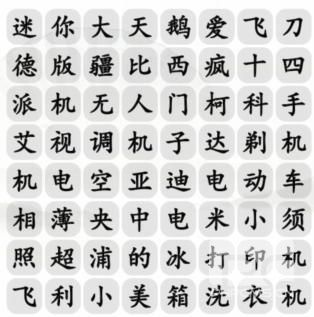 迷你大天鹅爱飞刀
德版疆比西疯十四
派机无人门柯科手
艾视调机子达剃机
机电空亚迪电动车
相薄央中电米小须
照超浦的冰打印机
飞利小美箱洗衣机